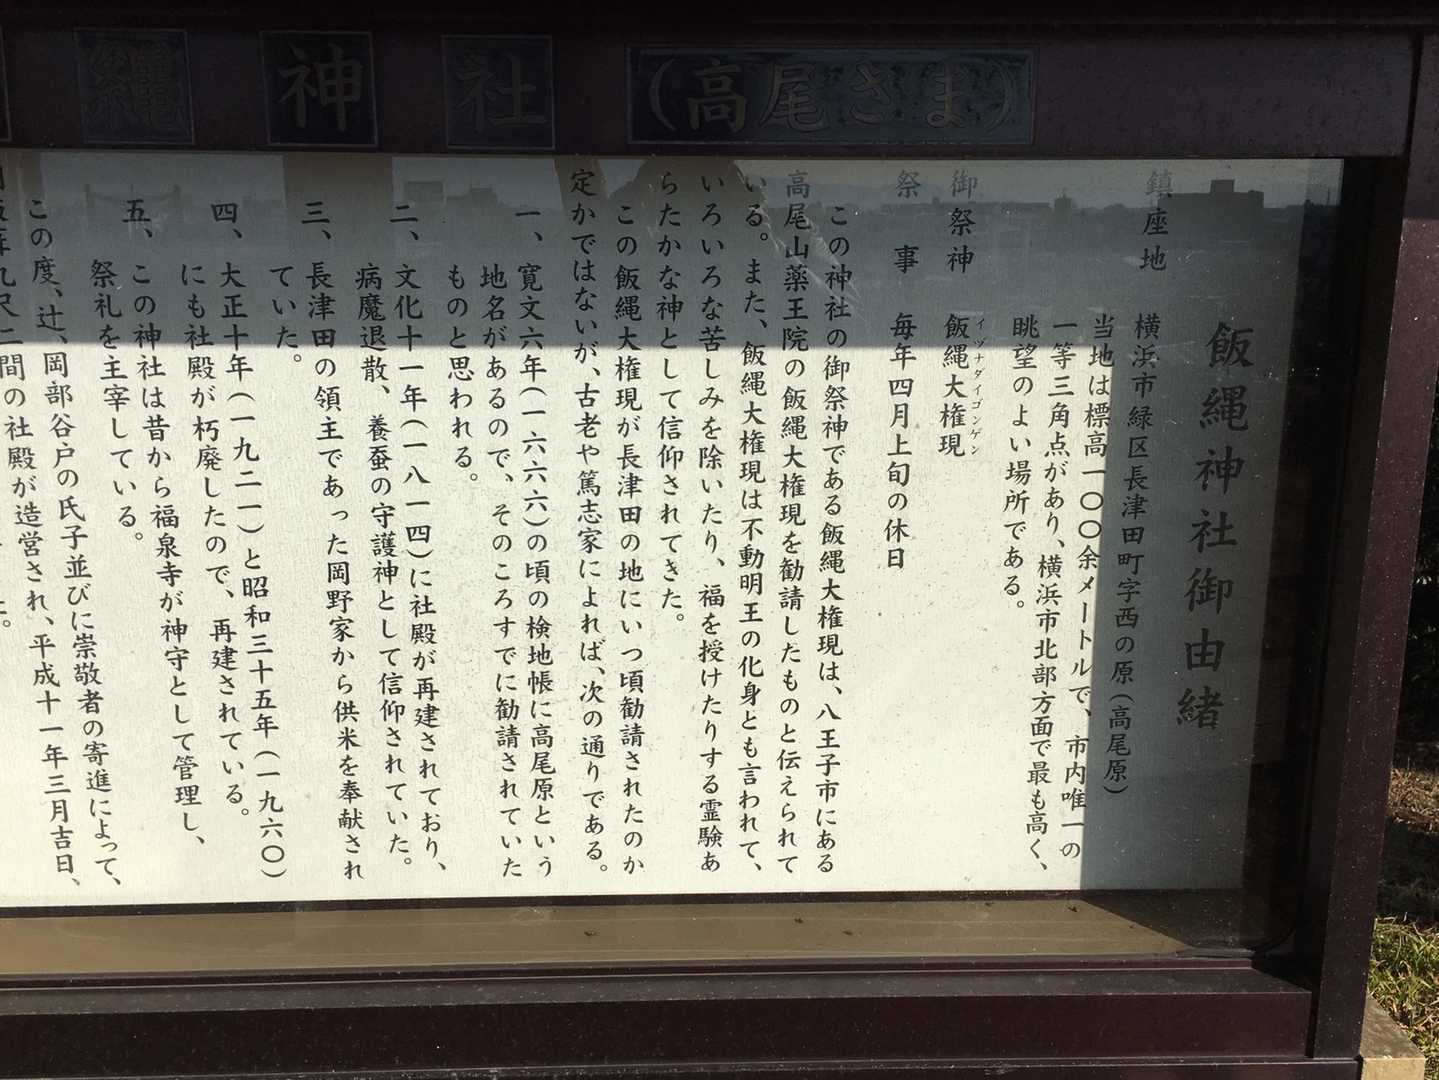 縄神社(高尾さま)
飯縄神社御由緒
鎮座地 横浜市緑区長津田町字西の原(高尾原)
当地は標高一〇〇余メートルで、市内唯一の
一等三角点があり、横浜市北部方面で最も高く、
眺望のよい場所である。
御祭神 飯縄大権現
イヅナダイゴンゲン
祭事 毎年四月上旬の休日
この神社の御祭神である飯縄大権現は、八王子市にある
高尾山薬王院の飯縄大権現を勧請したものと伝えられて
いる。また、飯縄大権現は不動明王の化身とも言われて、
いろいろな苦しみを除いたり、福を授けたりする霊験あ
らたかな神として信仰されてきた。
この飯縄大権現が長津田の地にいつ頃勧請されたのか
定かではないが、古老や篤志家によれば、次の通りである。
一、寛文六年(一六六六)の頃の検地帳に高尾原という
地名があるので、そのころすでに勧請されていた
ものと思われる。
二、文化十一年(一八一四)に社殿が再建されており、
病魔退散、養蚕の守護神として信仰されていた。
三、長津田の領主であった岡野家から供米を奉献され
ていた。
四、大正十年(一九二一)と昭和三十五年(一九六〇)
にも社殿が朽廃したので、再建されている。
五、この神社は昔から福泉寺が神守として管理し、
祭礼を主宰している。
この度、辻、岡部谷戸の氏子並びに崇敬者の寄進によって、
九尺二間の社殿が造営され、平成十一年三月吉日、